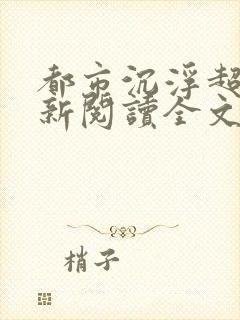 都市沉浮超
新閱讀全文
梢子